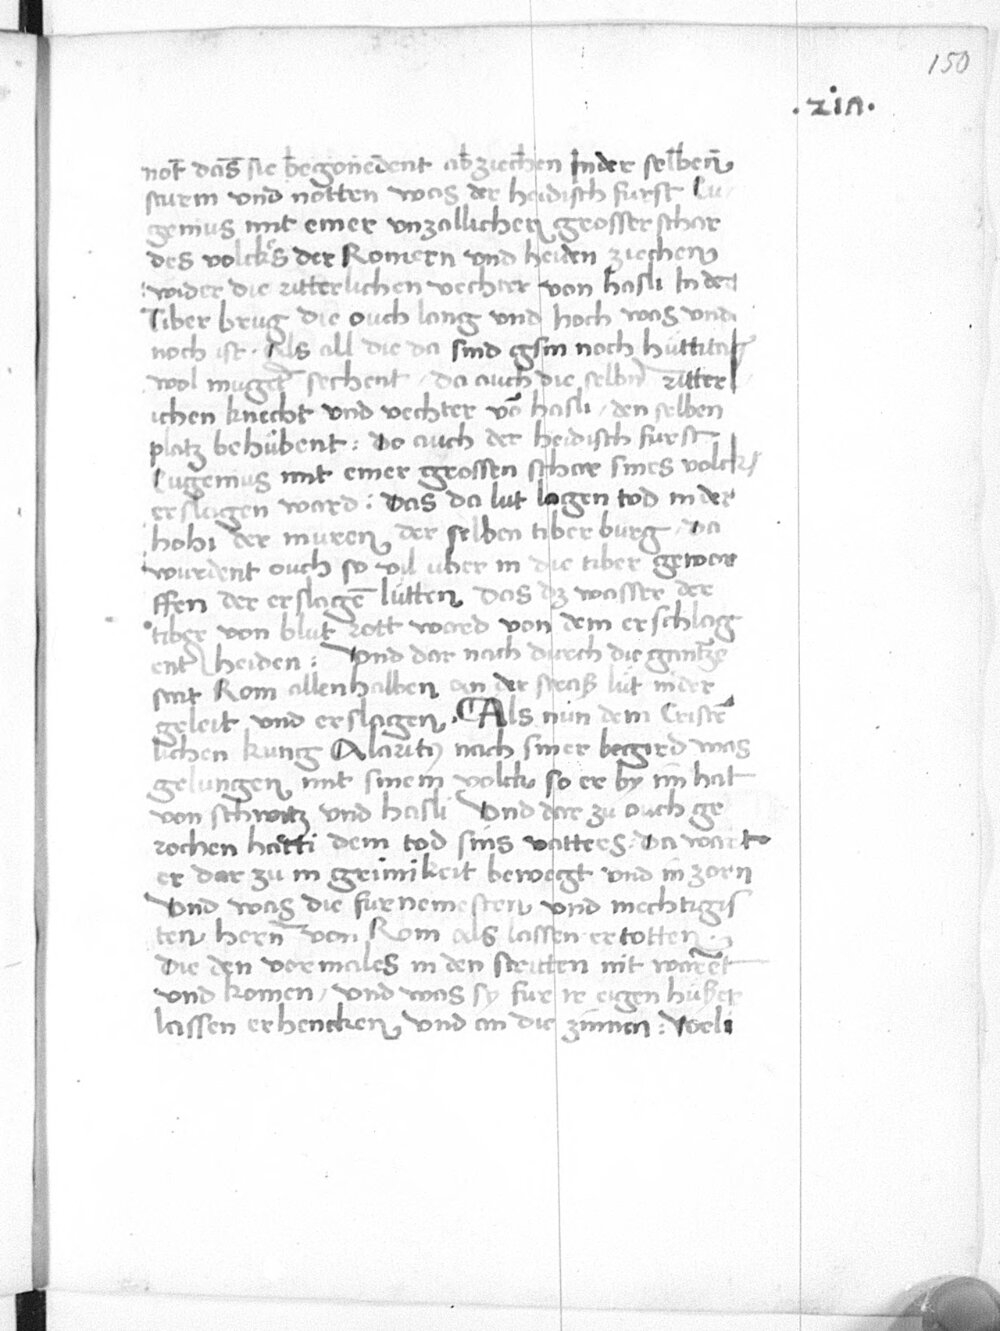 150
. zin .
not das sie begonedent abziechen Inder selben
sturm vnd nötten was der heidisch furst Eu
genius mit einer vnzallichen grosser schar
des volckes der Romern vnd heiden ziechen
wider die ritterlichen vechter von hasli In der
Tiber brug die ouch lang vnd hoch was vnd
noch ist. Als all die da sind gsin noch hüttitag
wol mugent sechent / da auch die selbn ritterl
ichen knecht vnd vechter vō hasli / den selben
platz behübent : do auch der heidisch furst
Eugenius mit einer grossen schar sines volcks
erslagen ward : das da lut lagen tod in der
hohi der muren der selben tiber burg / da
wurdent ouch so vil uber in die tiber gewor
ffen der erslagē lütten das dz wasser der
tiber von blut rott ward von dem erschlag
enē heiden : Vnd dar nach durch die gantze
stat Rom allenhalben an der straß lut nider
geleit vnd erslagen. Als nun dem Cristē
lichen kung Alarity nach siner begird was
gelungen mit sinem volck so er by im hat
von schwitz vnd hasli Vnd dar zu ouch ge
rochen hatti dem tod sins vatters. da wart
er dar zu in grimikeit bewegt vnd in zorn
Vnd was die furnemesten vnd mechtigis
ten hern von Rom als lassen ertotten.
die den vormales in den stritten nit warēt
vnd komen / vnd was sy fur ir eigen hüßer
lassen erhencken vnd an die zinnen : Voeli